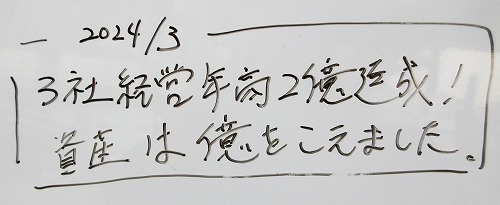 2024/3
3社経営年商2億達成!
資産は億をこえました。